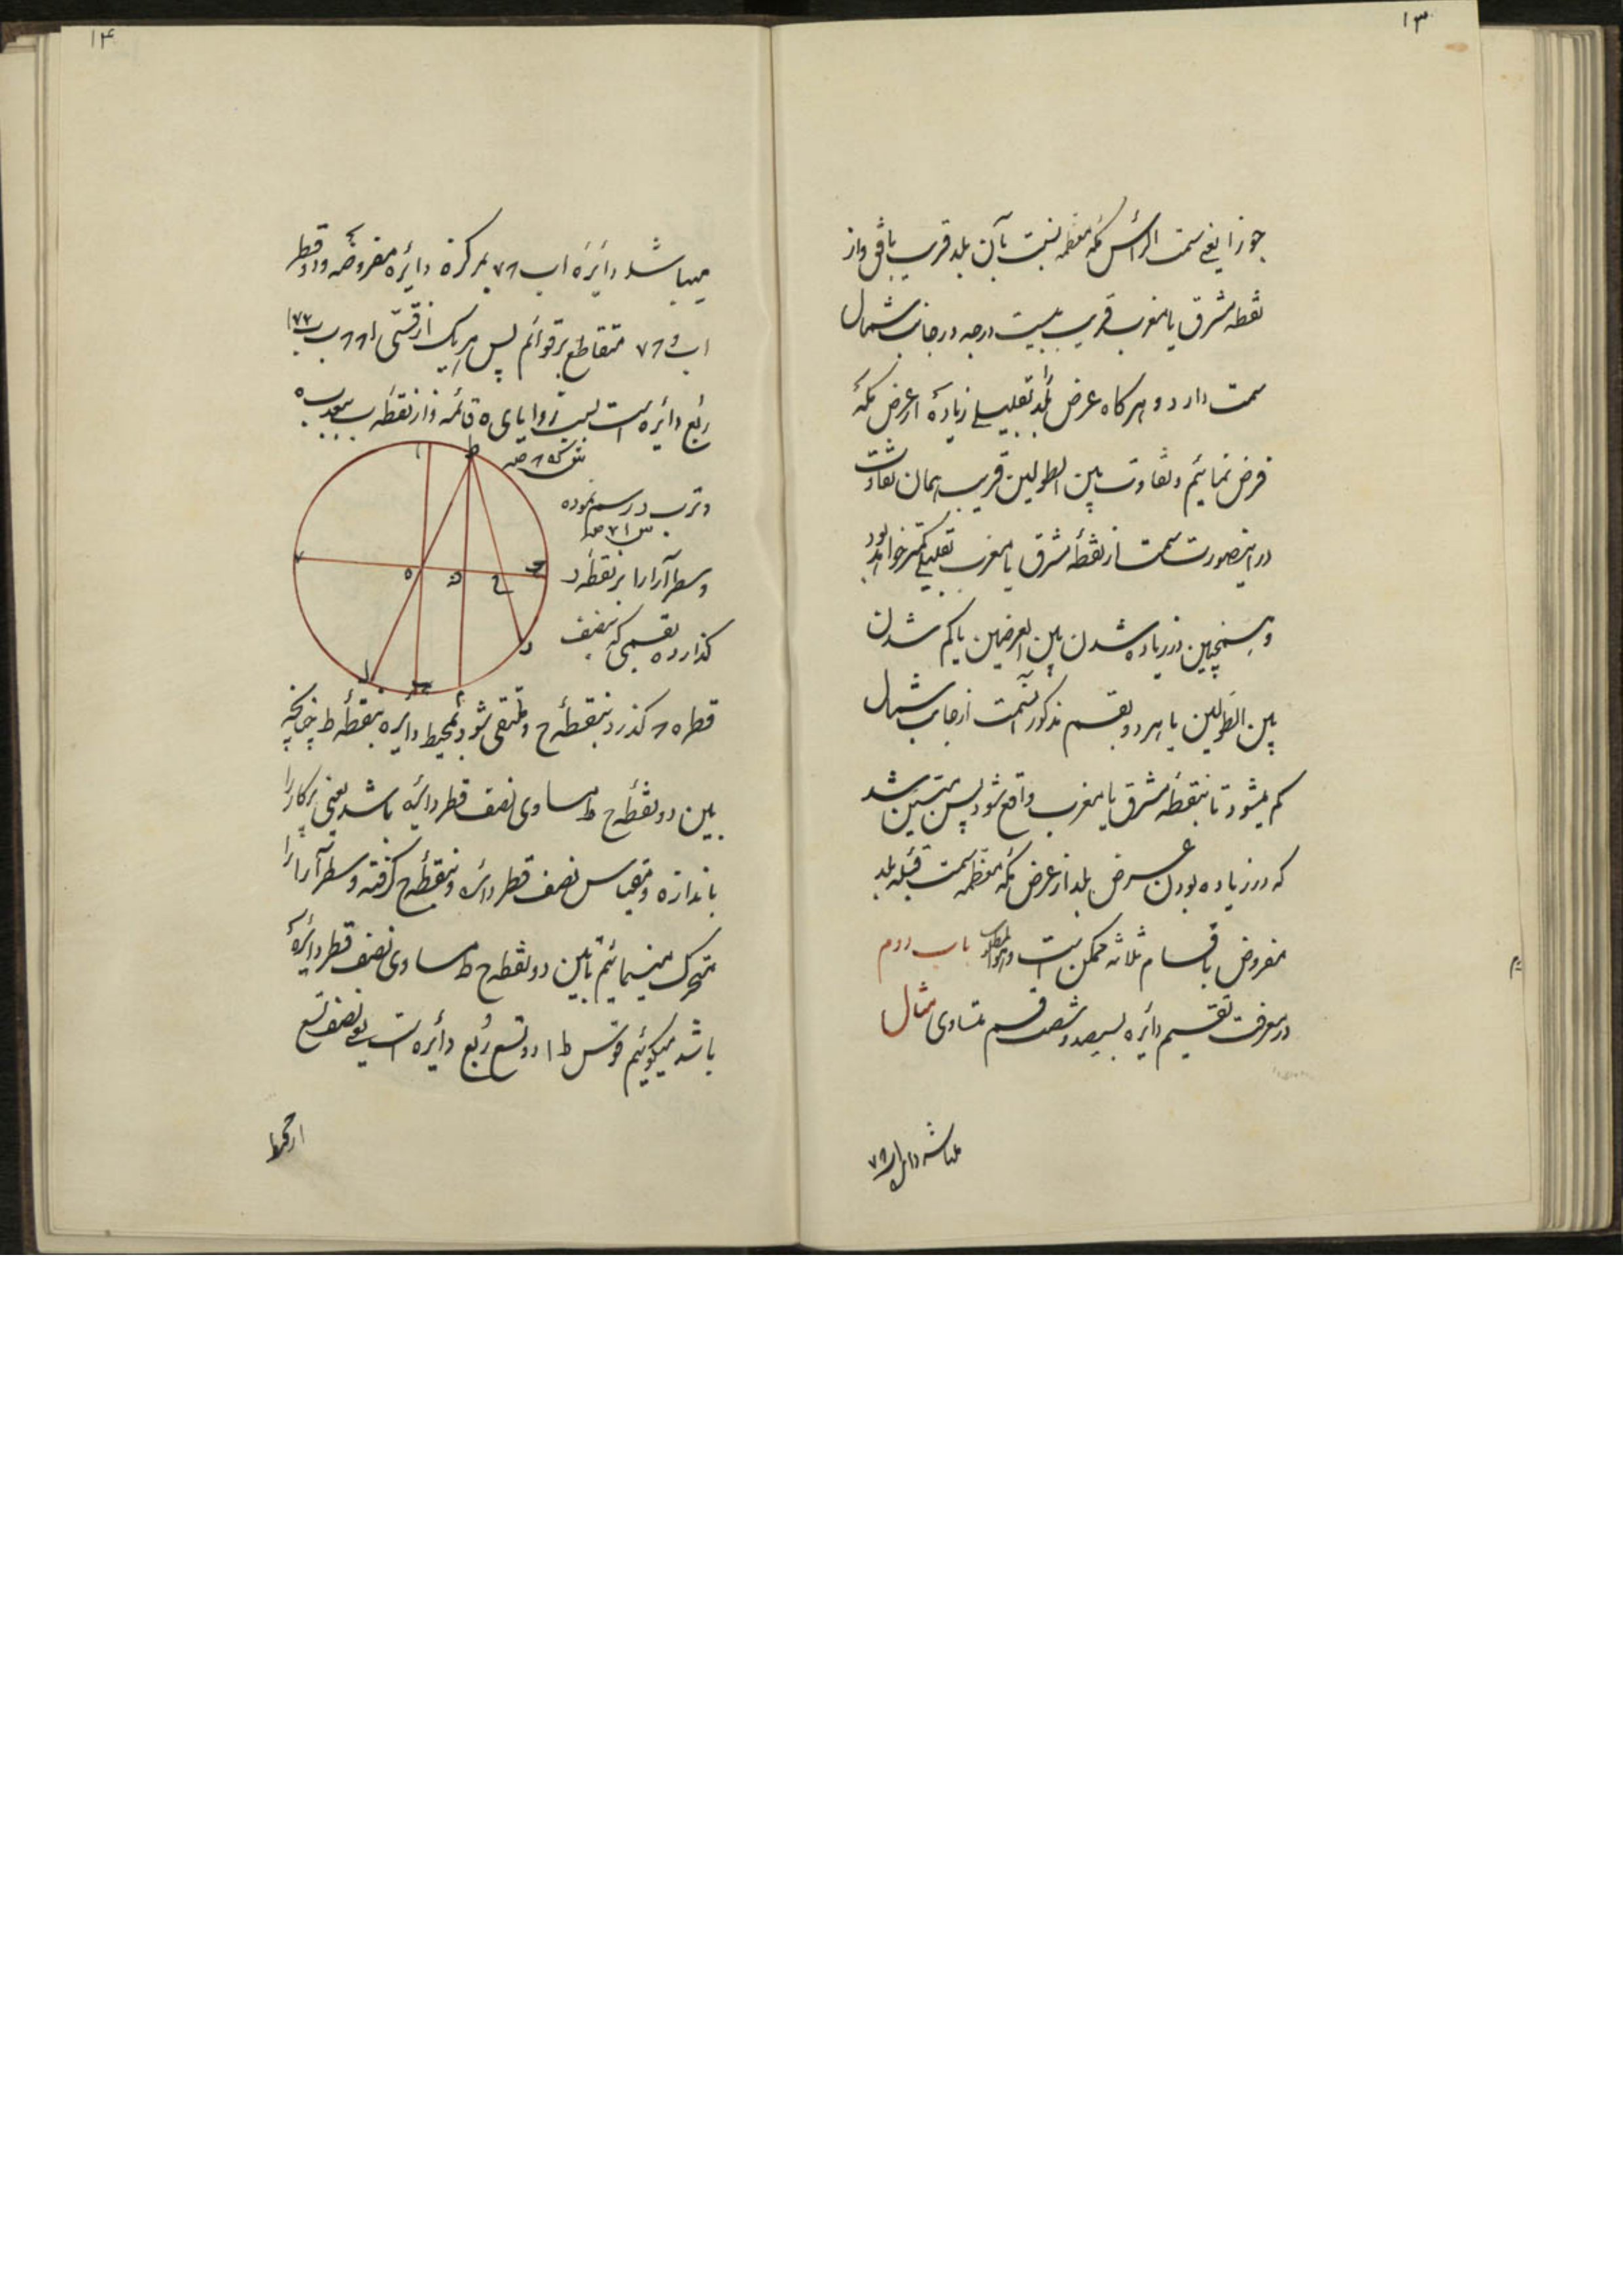 ۱۳
جوزا یعنی سمت الرأس مکه معظمه نسبت بآن بلد قریب بافق واز
نقطه مشرق یا مغرب قریب بیست درجه در جانب شمال
سمت دارد و هرگاه عرض بلد بقلیلی زیاده از عرض مکه
فرض نمائیم و تفاوت بین الطولین قریب همان تفاوت
در اینصورت سمت از نقطه مشرق یا مغرب بقلیلی کمتر خواهد بود
و همچنین در زیاده شدن بین العرضین یا کم شدن
بین الطولین یا هر دو بقسم مذکور سمت از جانب شمال
کم میشود تا بنقطه مشرق یا مغرب واقع شود پس متبین شد
که در زیاده بودن عرض بلد از عرض مکه معظمه سمت قبله بلد
مفروض باقسام ثلاثه ممکن است وهوالمطلوب باب دوم
در معرفت تقسیم دائره بسیصد و شصت قسم متساوی مثال
۱۴
میباشد دایره اب مرکزه دائره مفروضه ودو قطر
متقاطع بر قوائم پس هر یک از قسی
ربع دائره است بسبب زوایای ه قائمه واز نقطه ب ببعد ب ه
وتر ب د رسم نموده
وسطرآرا را بر نقطه د
گذارده بقسمی که بنصف
قطر ه گذرد بنقطه ح و ملتقی شود بمحیط دایره بنقطه ط چنانچه
بین دو نقطه ح ط مساوی نصف قطر دائره باشد یعنی پرکار را
باندازه و مقیاس نصف قطر دائره و بنقطه ح گرفته وسطرآرا را
متحرک مینمائیم تا بین دو نقطه ح ط مساوی نصف قطر دایره
باشد میگوئیم قوس ط ا دو تسع ربع دائره است یعنی نصف تسع
از محیط